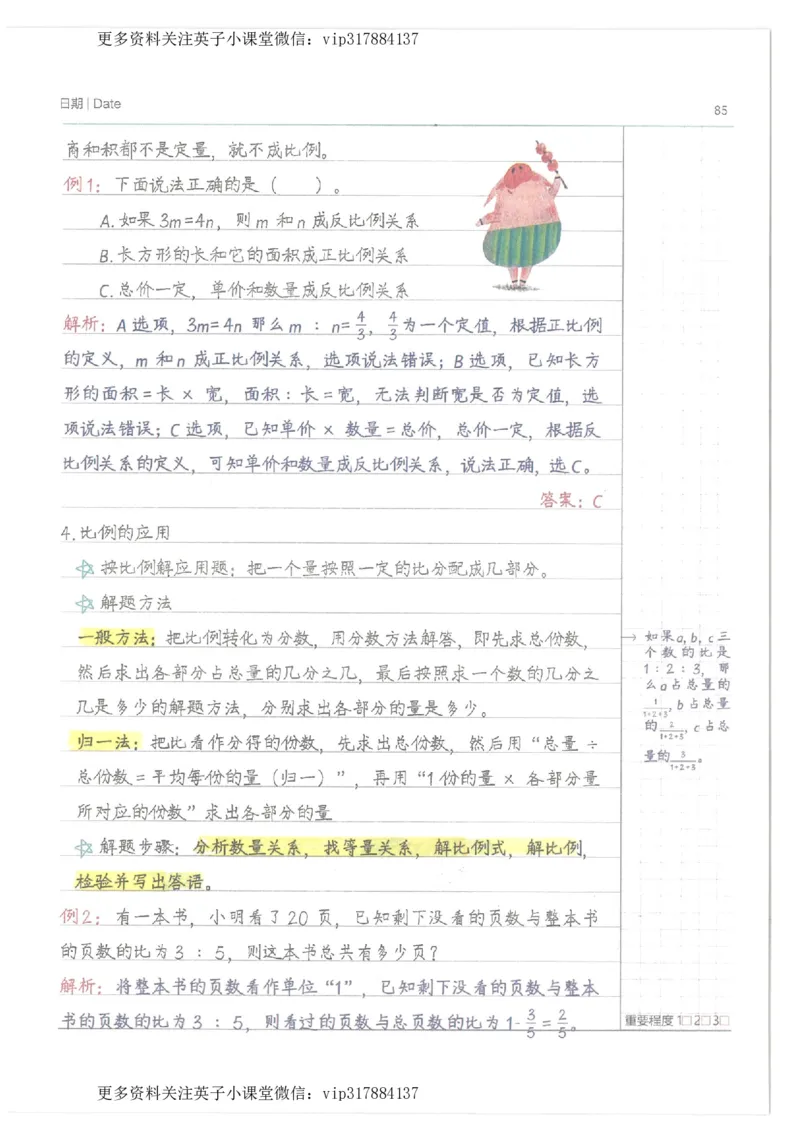 更多资料关注英子小课堂微信：vip317884137
日期 | Date
85
商和积都不是定量，就不成比例。
例1：下面说法正确的是（　　）。
A.如果3m=4n，则m和n成反比例关系
B.长方形的长和它的面积成正比例关系
C.总价一定，单价和数量成反比例关系
解析：A选项，3m=4n 那么m : n=4/3，4/3为一个定值，根据正比例
的定义，m和n成正比例关系，选项说法错误；B选项，已知长方
形的面积=长×宽，面积：长=宽，无法判断宽是否为定值，选
项说法错误；C选项，已知单价×数量=总价，总价一定，根据反
比例关系的定义，可知单价和数量成反比例关系，说法正确，选C。
答案：C
4.比例的应用
☆按比例解应用题：把一个量按照一定的比分配成几部分。
☆解题方法
一般方法：把比例转化为分数，用分数方法解答，即先求总份数，
然后求出各部分占总量的几分之几，最后按照求一个数的几分之
几是多少的解题方法，分别求出各部分的量是多少。
归一法：把比看作分得的份数，先求出总份数，然后用“总量÷
总份数=平均每份的量（归一）”，再用“1份的量×各部分量
所对应的份数”求出各部分的量
☆解题步骤：分析数量关系，找等量关系，解比例式，解比例，
检验并写出答语。
例2：有一本书，小明看了20页，已知剩下没看的页数与整本书
的页数的比为3：5，则这本书总共有多少页？
解析：将整本书的页数看作单位“1”，已知剩下没看的页数与整本
书的页数的比为3：5，则看过的页数与总页数的比为1-3/5=2/5。
→如果a,b,c三
个数的比是
1:2:3，那
么a占总量的
1/(1+2+3)，b占总量
的2/(1+2+3)，c占总
量的3/(1+2+3)。
重要程度 1□2□3□
更多资料关注英子小课堂微信：vip317884137